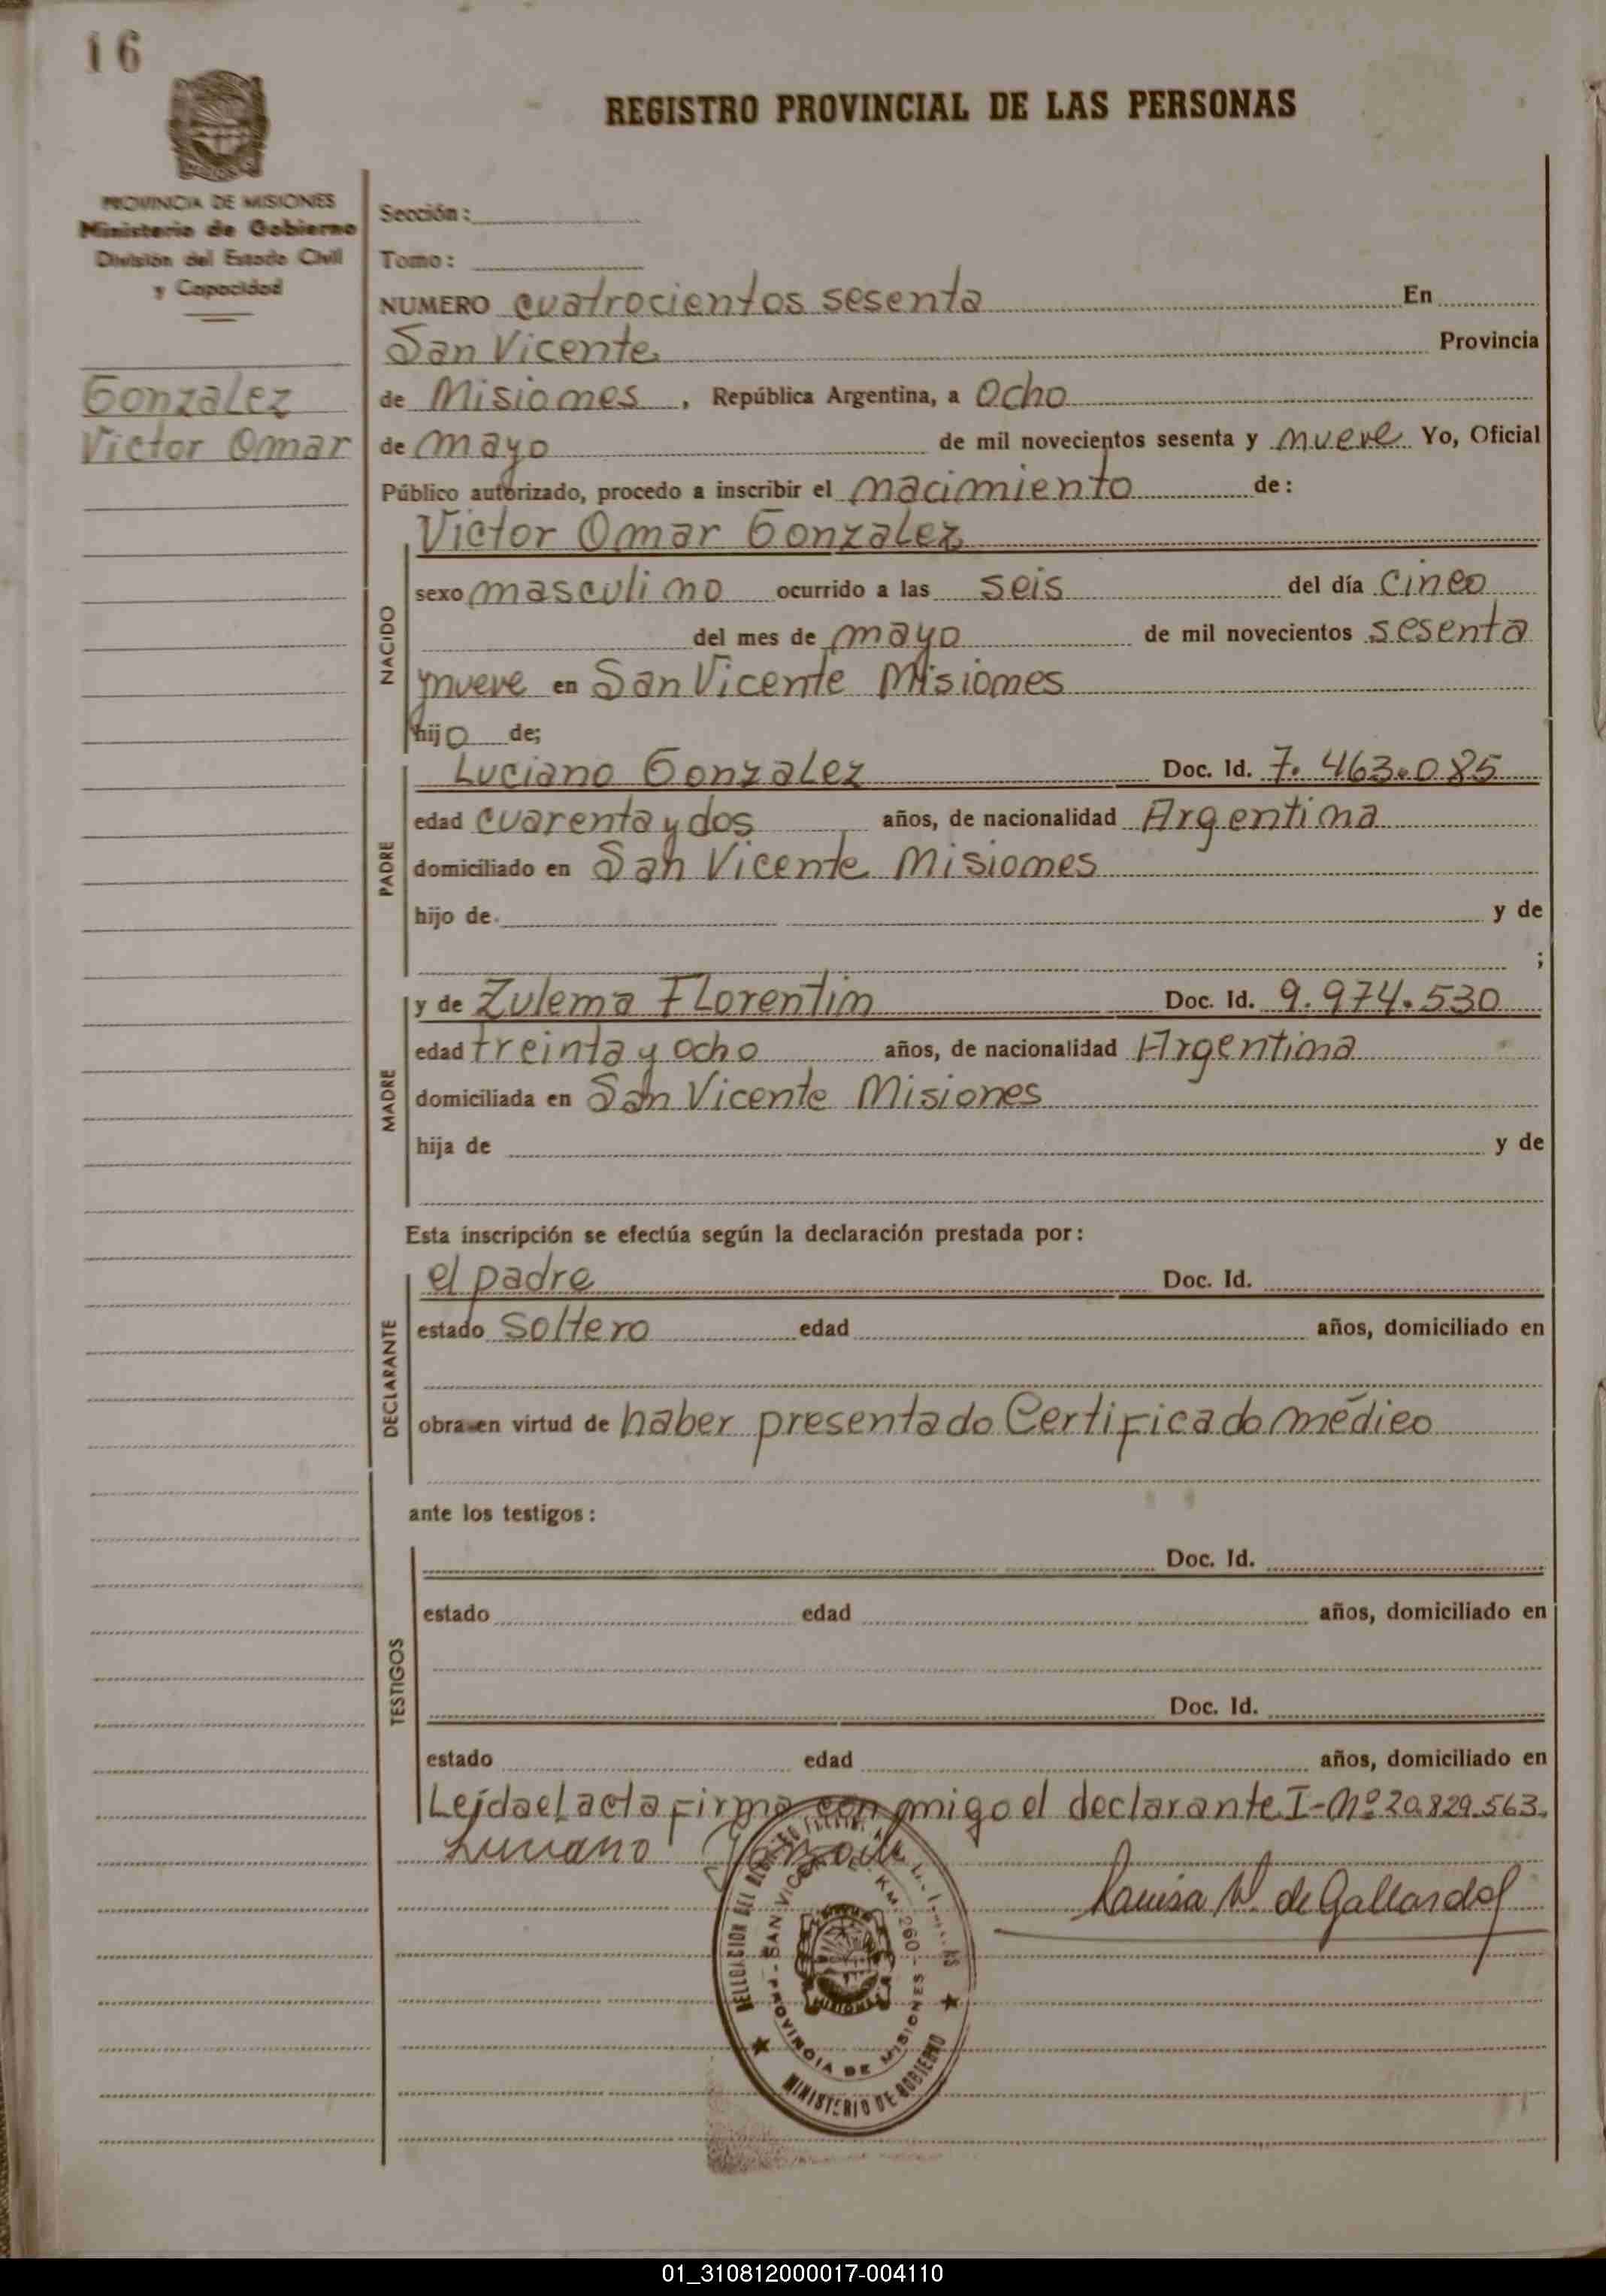 16
REGISTRO PROVINCIAL DE LAS PERSONAS
PROVINCIA DE MISIONES
Ministerio de Gobierno
División del Estado Civil
y Capacidad
Gonzalez
Victor Omar
Sección:
Tomo:
NUMERO cuatrocientos sesenta En
San Vicente Provincia
de Misiones, República Argentina, a Ocho
de mayo de mil novecientos sesenta y nueve Yo, Oficial
Público autorizado, procedo a inscribir el nacimiento de:
NACIDO
Victor Omar Gonzalez
sexo masculino ocurrido a las seis del día cinco
del mes de mayo de mil novecientos sesenta
ynueve en San Vicente Misiones
hijo de;
PADRE
Luciano Gonzalez Doc. Id. 7.463.085
edad cuarenta y dos años, de nacionalidad Argentina
domiciliado en San Vicente Misiones
hijo de y de
;
MADRE
y de Zulema Florentin Doc. Id. 9.974.530
edad treinta y ocho años, de nacionalidad Argentina
domiciliada en San Vicente Misiones
hija de y de
Esta inscripción se efectúa según la declaración prestada por:
DECLARANTE
el padre Doc. Id.
estado soltero edad años, domiciliado en
obra en virtud de haber presentado Certificado médico
ante los testigos:
TESTIGOS
Doc. Id.
estado edad años, domiciliado en
Doc. Id.
estado edad años, domiciliado en
Leída el acta firma conmigo el declarante I-Nº 20.829.563.
Luciano Gonzalez
Louisa W. de Gallardo
DELEGACION DEL REGISTRO
SAN VICENTE KM. 260 - PROVINCIA DE MISIONES
MISIONES
MINISTERIO DE GOBIERNO
01_310812000017-004110